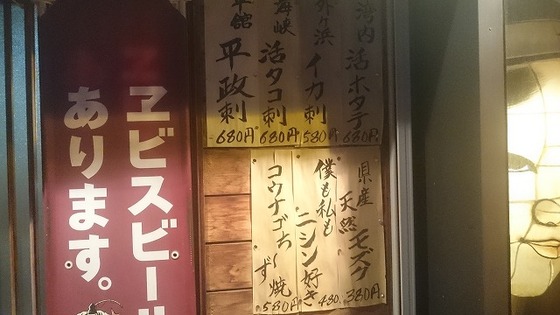 湾内
活ホタテ
680円
外ヶ浜
イカ刺
580円
海峡
活タコ刺
680円
平舘
平政刺
680円
県産
天然
モズク
380円
僕も私も
ニシン好き
480.
コウナゴちーず焼
580円
ヱビスビール
あります。